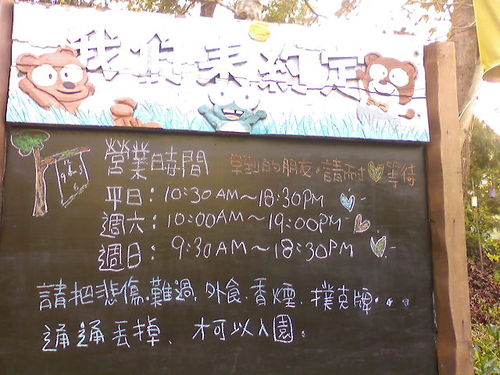 我與未來約定
營業時間
早到的朋友,請耐等待
平日:10:30AM~18:30PM
週六:10:00AM~19:00PM
週日:9:30AM~18:30PM
請把悲傷.難過.外食.香煙.撲克牌...
通通丟掉、才可以入園。